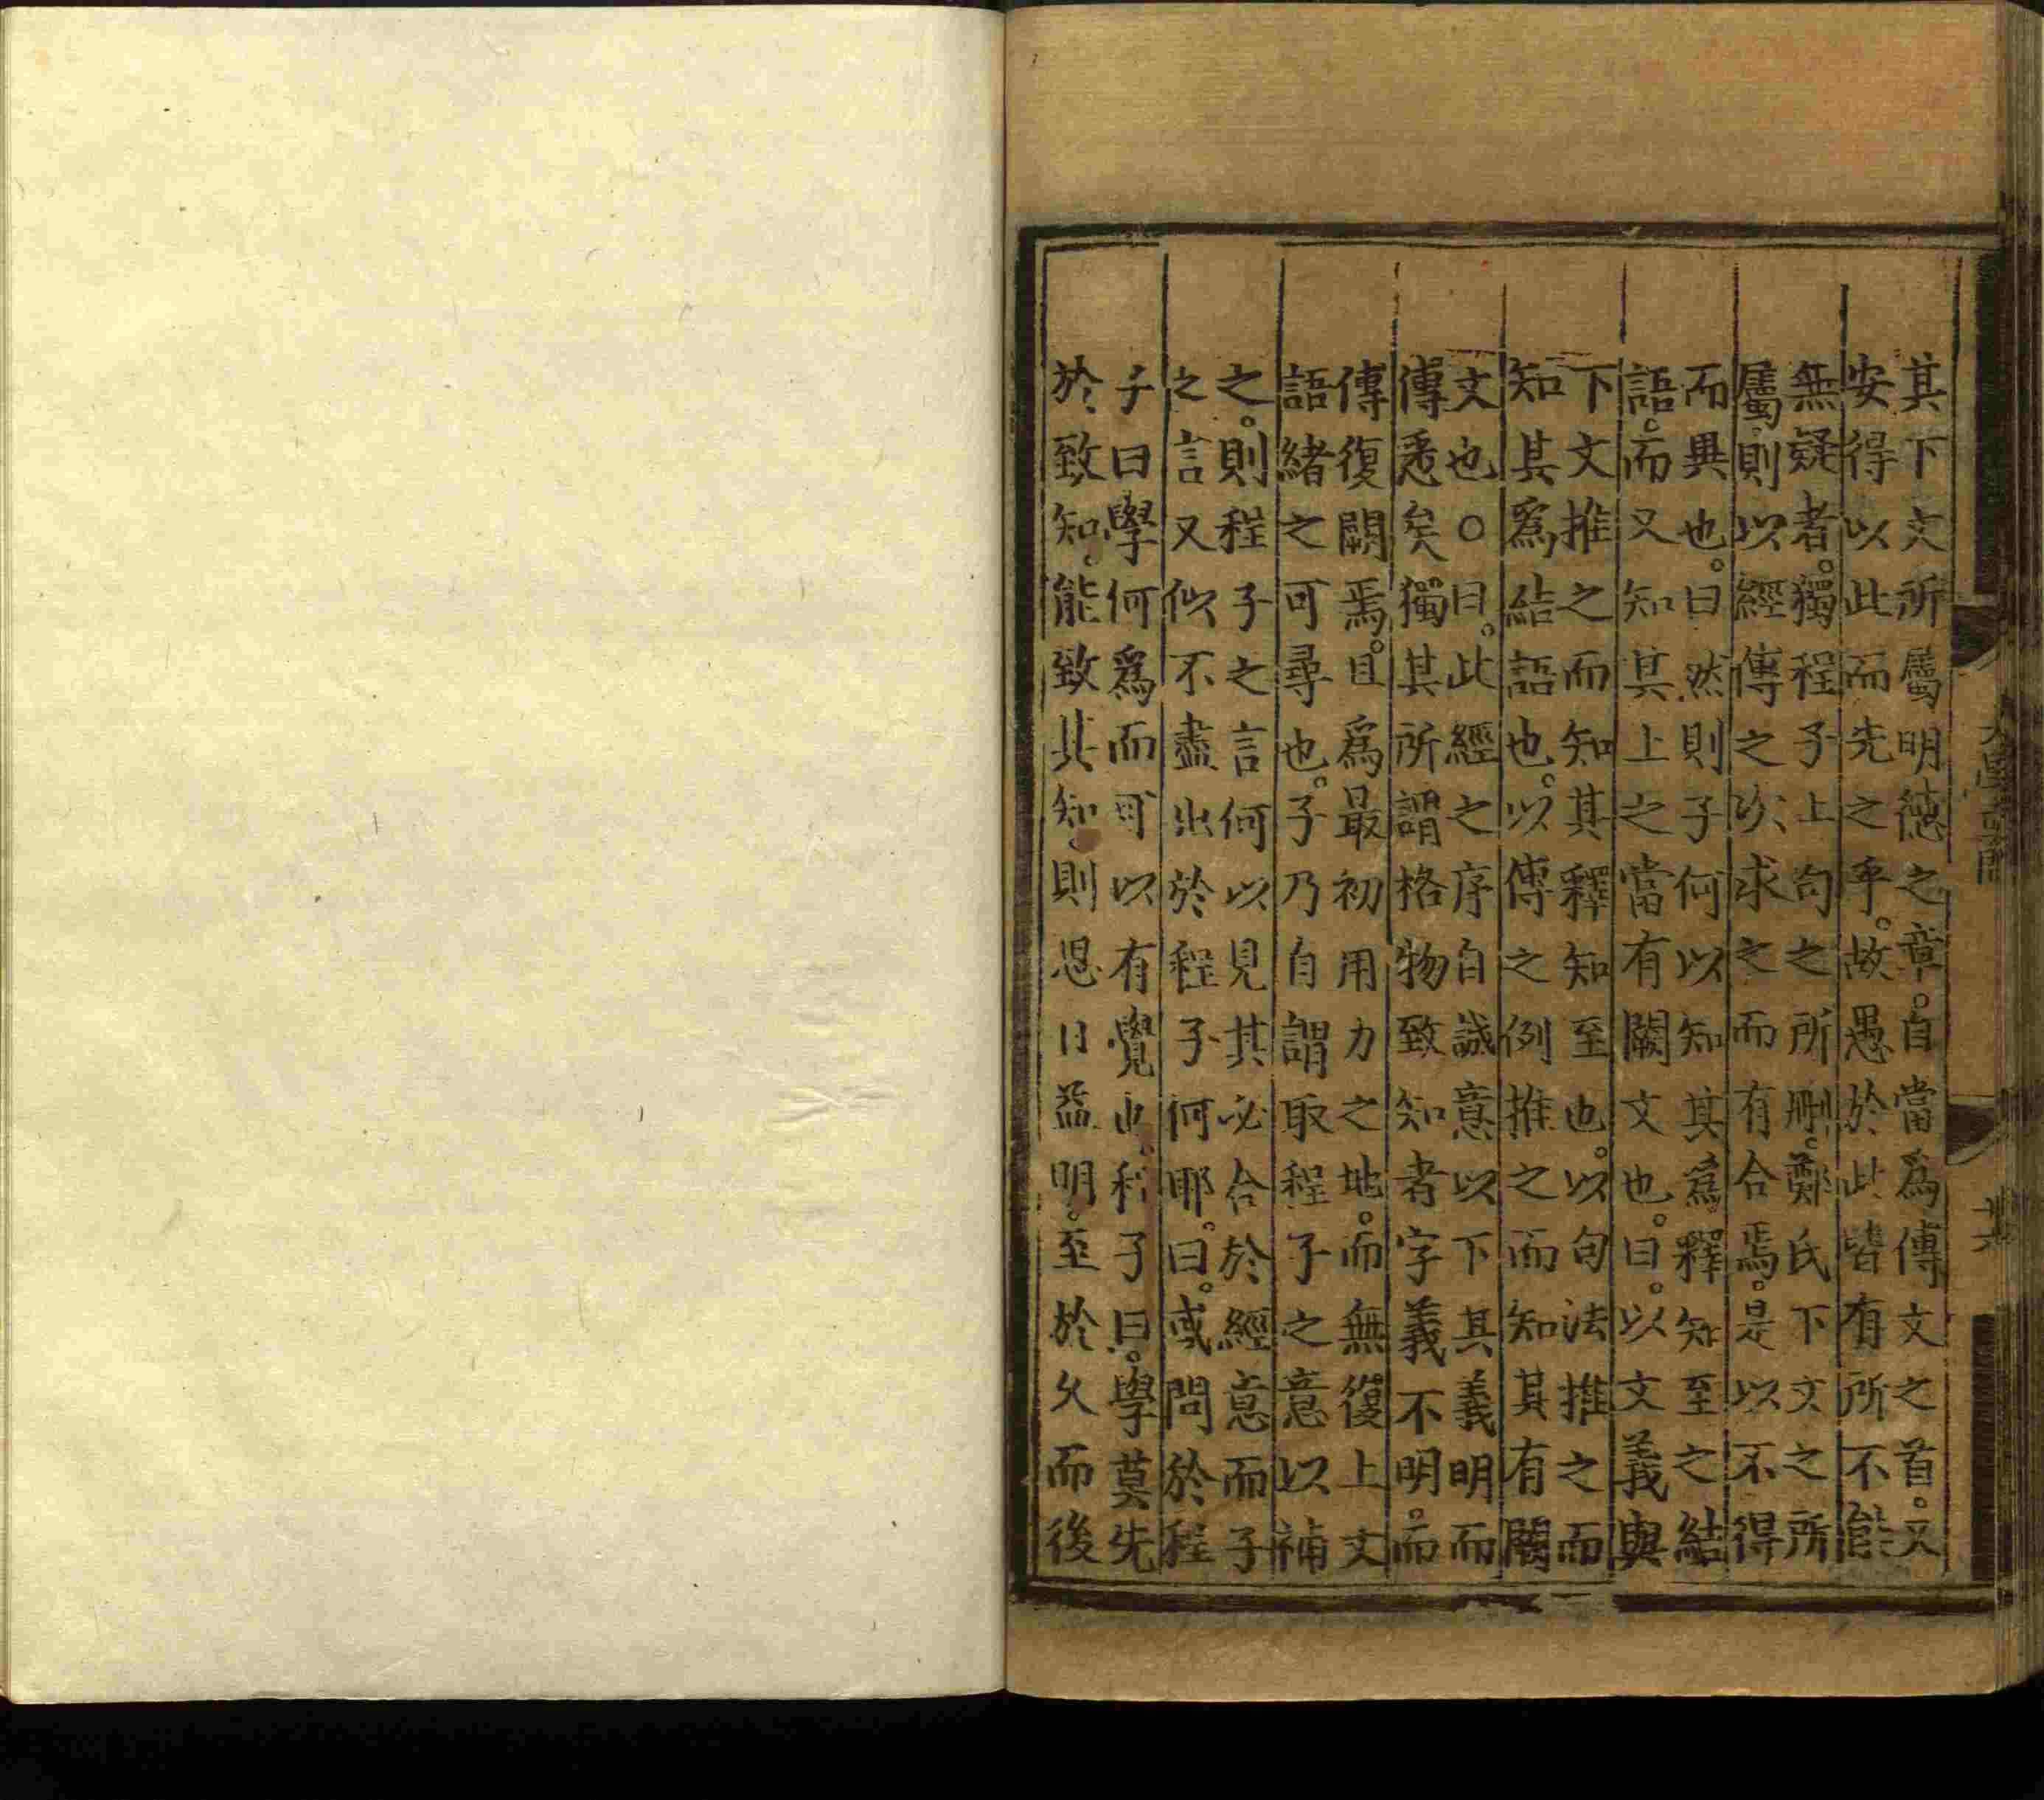 其下文所屬明德之章。自當為傳文之首。又
安得以此而先之乎。故愚於此皆有所不能
無疑者。獨程子上句之所刪。鄭氏下文之所
屬。則以經傳之次求之而有合焉。是以不得
而異也。曰然則子何以知其爲釋知至之結
語。而又知其上之當有闕文也。曰。以文義與
下文推之而知其釋知至也。以句法推之而
知其爲結語也。以傳之例推之而知其有闕
文也。○曰。此經之序自誠意以下其義明而
傳悉矣獨其所謂格物致知者字義不明。而
傳復闕焉。且爲最初用力之地。而無復上文
語緒之可尋也。子乃自謂取程子之意以補
之。則程子之言何以見其必合於經意而子
之言又似不盡出於程子何耶。曰。或問於程
子曰學何爲而可以有覺也。程子曰。學莫先
於致知。能致其知。則思日益明。至於久而後